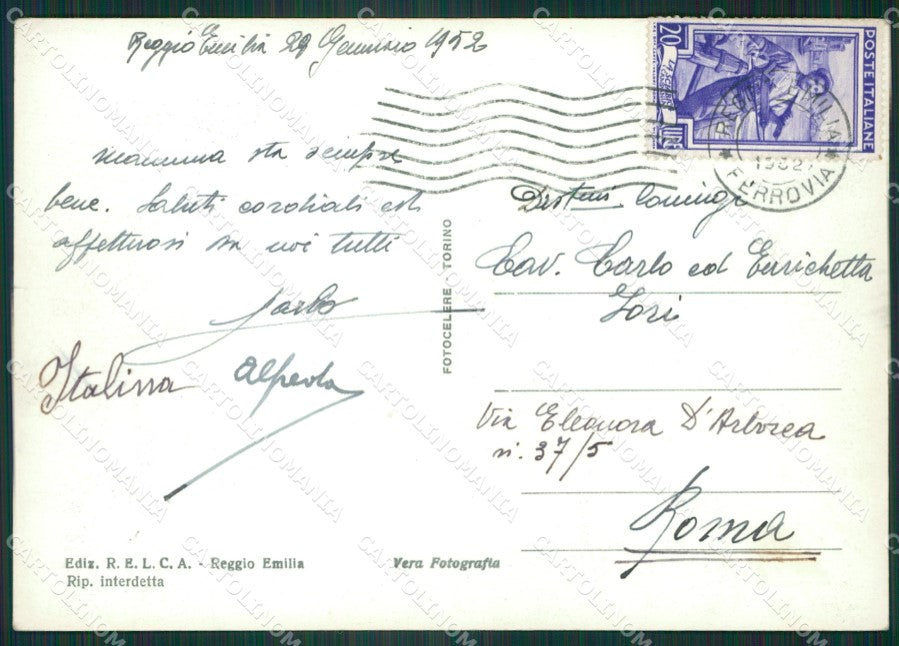 Reggio Emilia 29 Gennaio 1952
mamma sta sempre
bene. Saluti cordiali ed
affettuosi da noi tutti
Carlo
Italina
Alfreda
Ediz. R. E. L. C. A. - Reggio Emilia
Rip. interdetta
Vera Fotografia
FOTOCELERE TORINO
POSTE ITALIANE
20
LIRE
REGGIO EMILIA
1952
FERROVIA
Dist.mi Coniugi
Cav. Carlo ed Enrichetta
Iori
Via Eleonora D'Arborea
n. 37/5
Roma
CARTOLINOMANIA